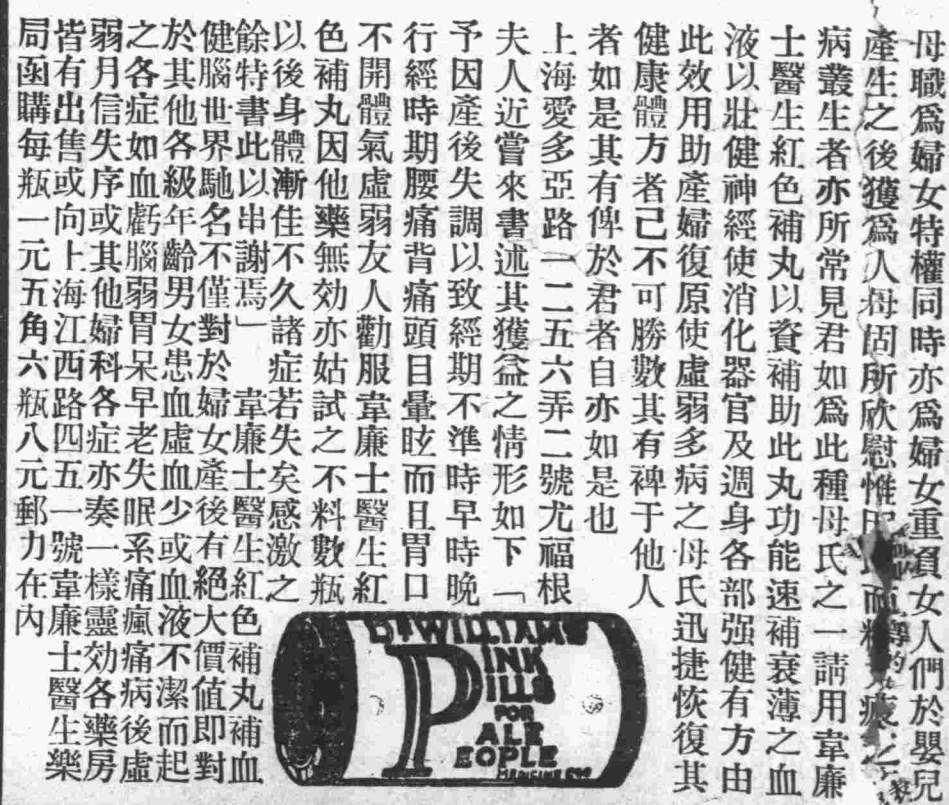 母職爲婦女特權同時亦爲婦女重負女人們於嬰兒
產生之後獲爲人母固所欣慰惟 而 疲
病叢生者亦所常見君如爲此種母氏之一請用韋廉
士醫生紅色補丸以資補助此丸功能速補衰薄之血
液以壯健神經使消化器官及週身各部强健有方由
此效用助產婦復原使虛弱多病之母氏迅捷恢復其
健康體方者己不可勝數其有裨于他人
者如是其有俾於君者自亦如是也
上海愛多亞路一二五六弄二號尤福根
夫人近嘗來書述其獲益之情形如下「
予因產後失調以致經期不準時早時晚
行經時期腰痛背痛頭目暈眩而且胃口
不開體氣虛弱友人勸服韋廉士醫生紅
色補丸因他藥無効亦姑試之不料數瓶
以後身體漸佳不久諸症若失矣感激之
餘特書此以串謝焉」 韋廉士醫生紅色補丸補血
健腦世界馳名不僅對於婦女產後有絕大價值即對
於其他各級年齡男女患血虛血少或血液不潔而起
之各症如血虧腦弱胃呆早老失眠系痛瘋痛病後虛
弱月信失序或其他婦科各症亦奏一樣靈効各藥房
皆有出售或向上海江西路四五一號韋廉士醫生藥
局函購每瓶一元五角六瓶八元郵力在內
Dr WILLIAMS
PINK
PILLS
FOR
PALE
PEOPLE